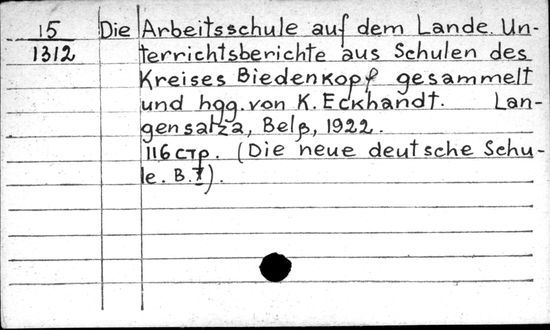 15 Die Arbeitsschule auf dem Lande. Un-
1312 terrichtsberichte aus Schulen des
Kreises Biedenkopf gesammelt
und hgg. von K. Eckhandt. Lan-
gensalza, Belß, 1922.
116 стр. (Die neue deutsche Schu-
le. B. 7).